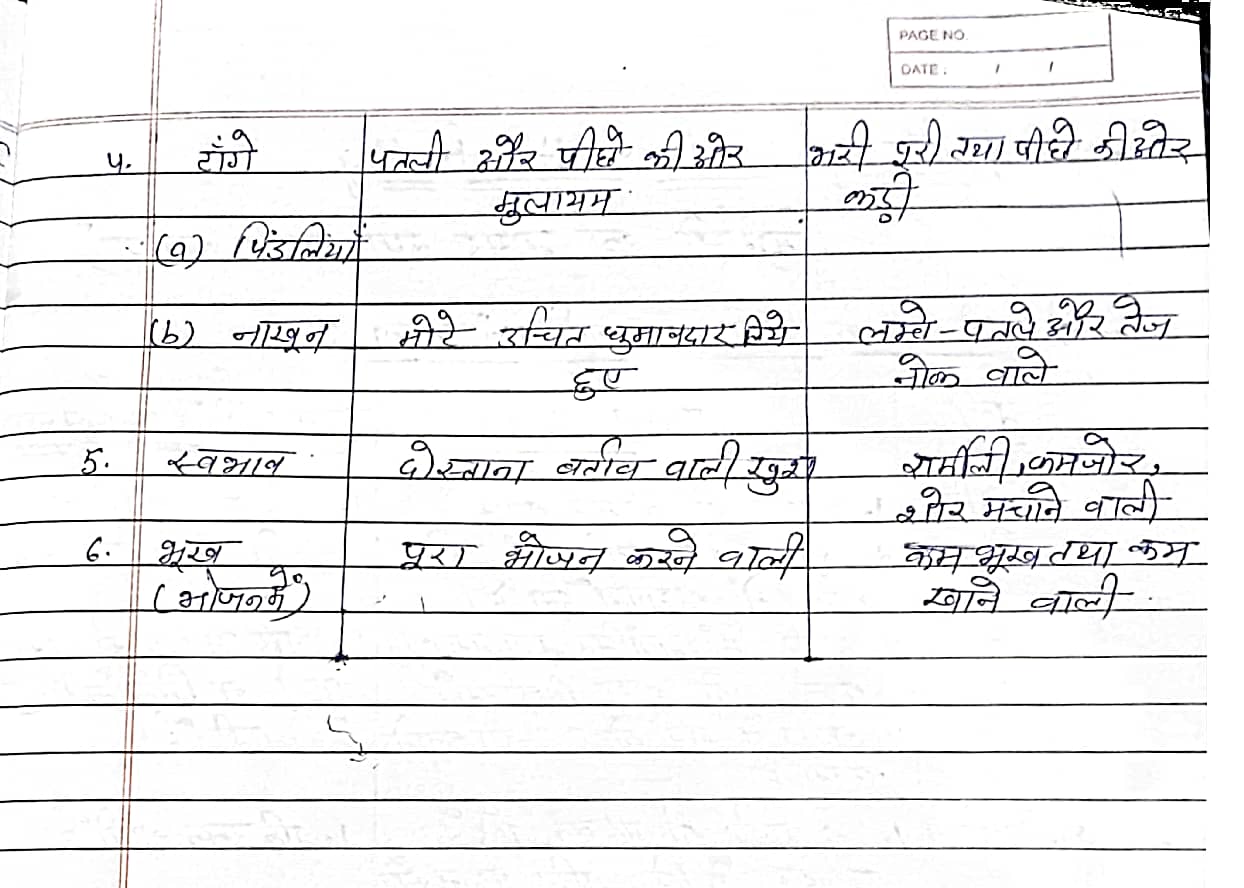 PAGE NO.
DATE: / /
4. टाँगे पतली और पीछे की ओर भरी पूरी तथा पीछे की ओर
मुलायम कड़ी
(a) पिंडलियाँ
(b) नाखून मोटे उचित घुमावदार लिये लम्बे - पतले और तेज
हुए नोक वाले
5. स्वभाव दोस्ताना बर्ताव वाली खुश शर्मीली, कमजोर,
शोर मचाने वाली
6. भूख पूरा भोजन करने वाली कम भूख तथा कम
(भोजन में) खाने वाली